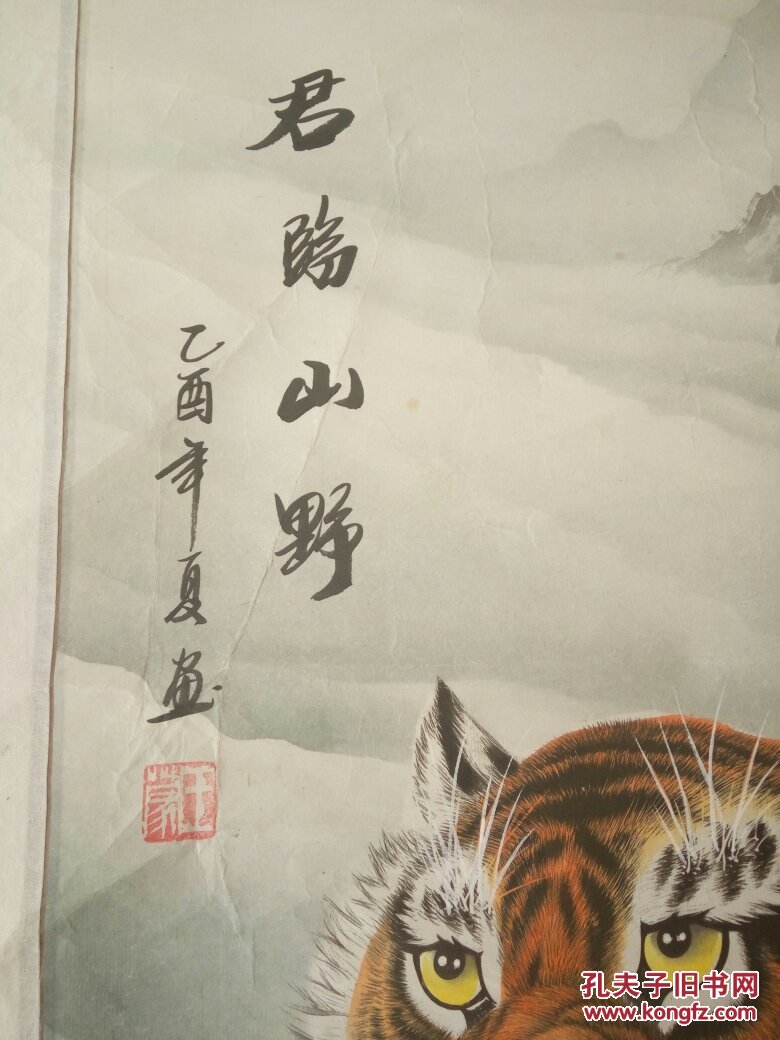 君臨山野
乙酉年夏画
王蒙
孔夫子旧书网
www.kongfz.com